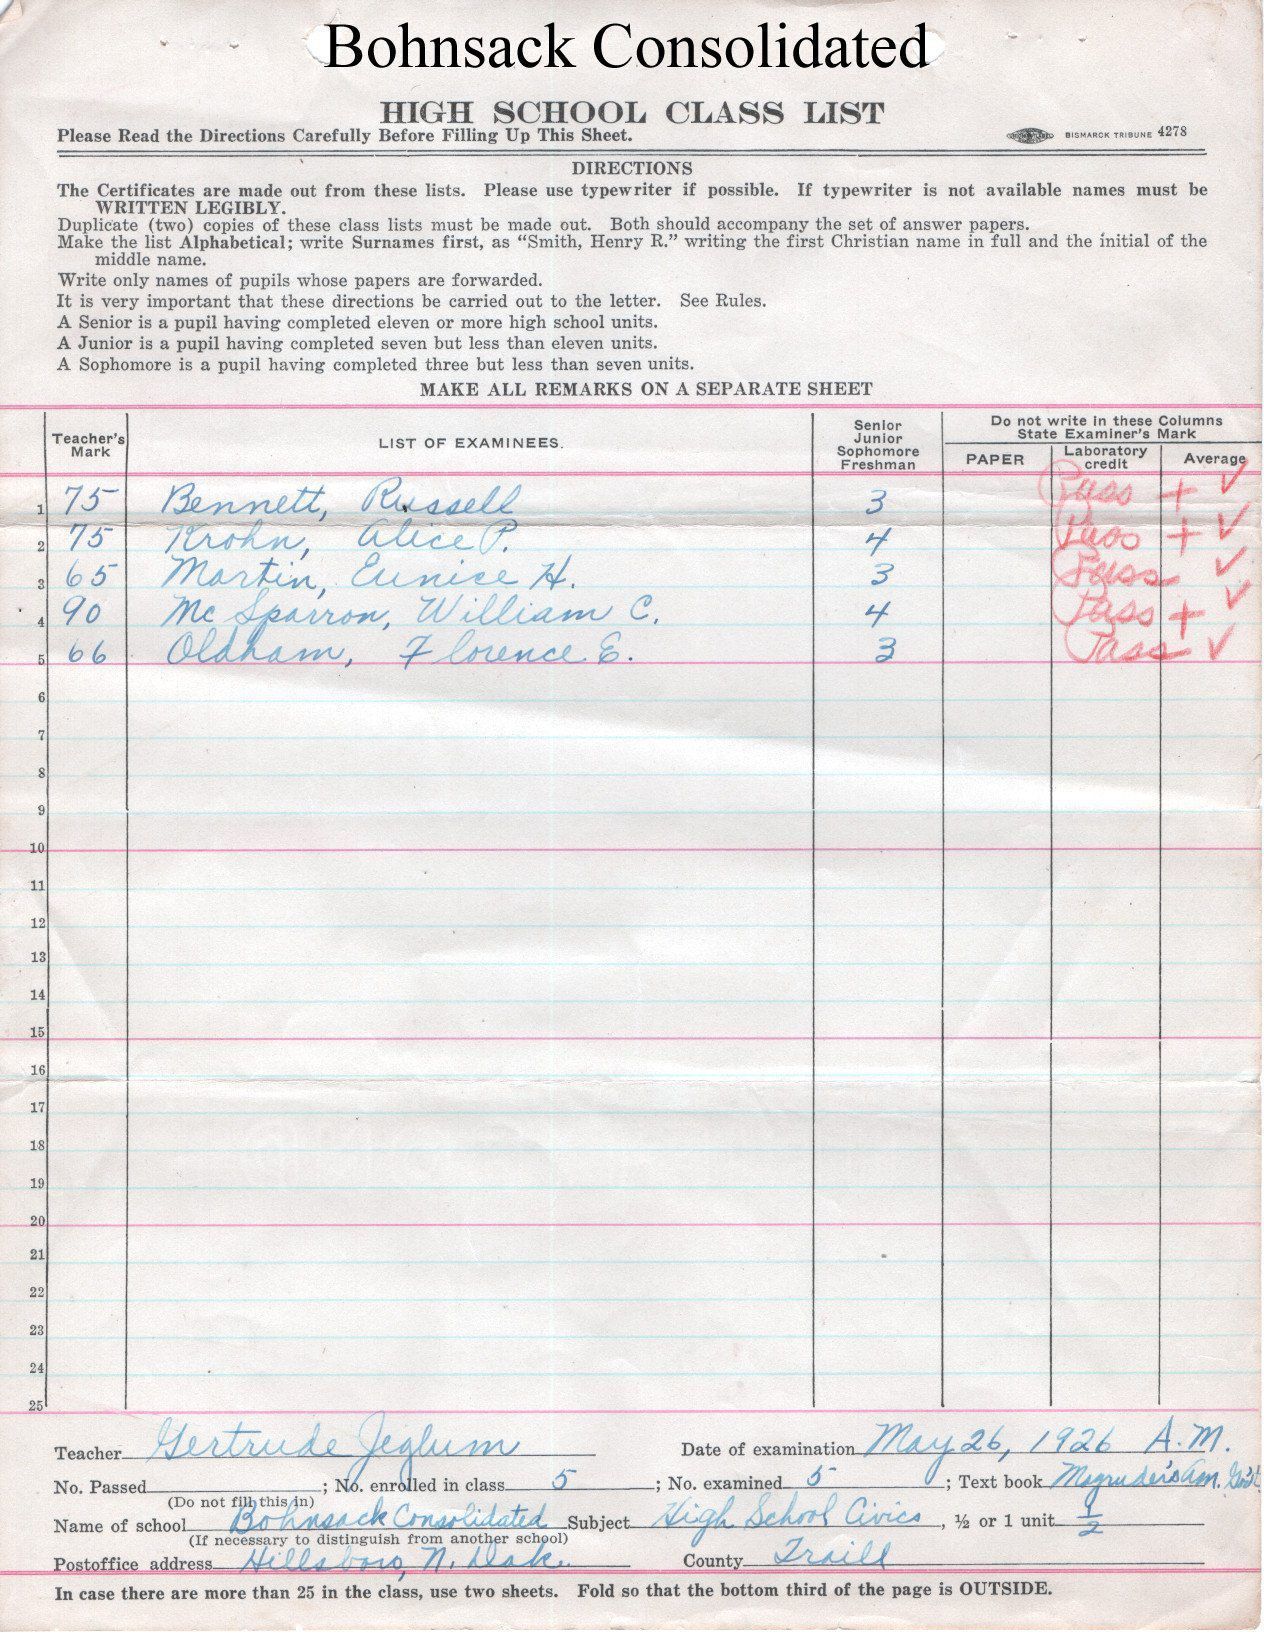 Bohnsack Consolidated
HIGH SCHOOL CLASS LIST
Please Read the Directions Carefully Before Filling Up This Sheet.
BISMARCK TRIBUNE 4278
DIRECTIONS
The Certificates are made out from these lists. Please use typewriter if possible. If typewriter is not available names must be
WRITTEN LEGIBLY.
Duplicate (two) copies of these class lists must be made out. Both should accompany the set of answer papers.
Make the list Alphabetical; write Surnames first, as “Smith, Henry R.” writing the first Christian name in full and the initial of the
middle name.
Write only names of pupils whose papers are forwarded.
It is very important that these directions be carried out to the letter. See Rules.
A Senior is a pupil having completed eleven or more high school units.
A Junior is a pupil having completed seven but less than eleven units.
A Sophomore is a pupil having completed three but less than seven units.
MAKE ALL REMARKS ON A SEPARATE SHEET
Teacher's
Mark
LIST OF EXAMINEES.
Senior
Junior
Sophomore
Freshman
Do not write in these Columns
State Examiner's Mark
PAPER
Laboratory
credit
Average
1 75 Bennett, Russell 3 Pass + ✓
2 75 Krohn, Alice P. 4 Pass + ✓
3 65 Martin, Eunice H. 3 Pass ✓
4 90 Mc Sparron, William C. 4 Pass + ✓
5 66 Oldham, Florence E. 3 Pass ✓
6
7
8
9
10
11
12
13
14
15
16
17
18
19
20
21
22
23
24
25
Teacher Gertrude Jeglum Date of examination May 26, 1926 A.M.
No. Passed ; No. enrolled in class 5 ; No. examined 5 ; Text book Magruder's Am. Gov't
(Do not fill this in)
Name of school Bohnsack Consolidated Subject High School Civics, ½ or 1 unit ½
(If necessary to distinguish from another school)
Postoffice address Hillsboro, N. Dak. County Traill
In case there are more than 25 in the class, use two sheets. Fold so that the bottom third of the page is OUTSIDE.